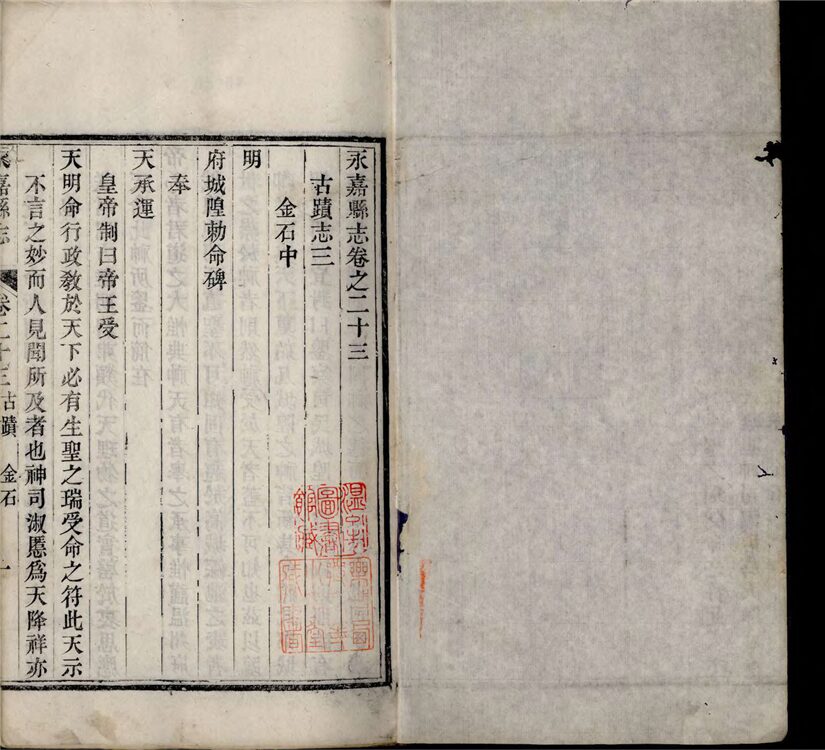 永嘉縣志卷之二十三
古蹟志三
金石中
明
府城隍勅命碑
奉
天承運
皇帝制曰帝王受
天明命行政敎於天下必有生聖之瑞受命之符此天示
不言之妙而人見聞所及者也神司淑慝爲天降祥亦
永嘉縣志 卷二十三 古蹟 金石 一
溫州圖書館藏